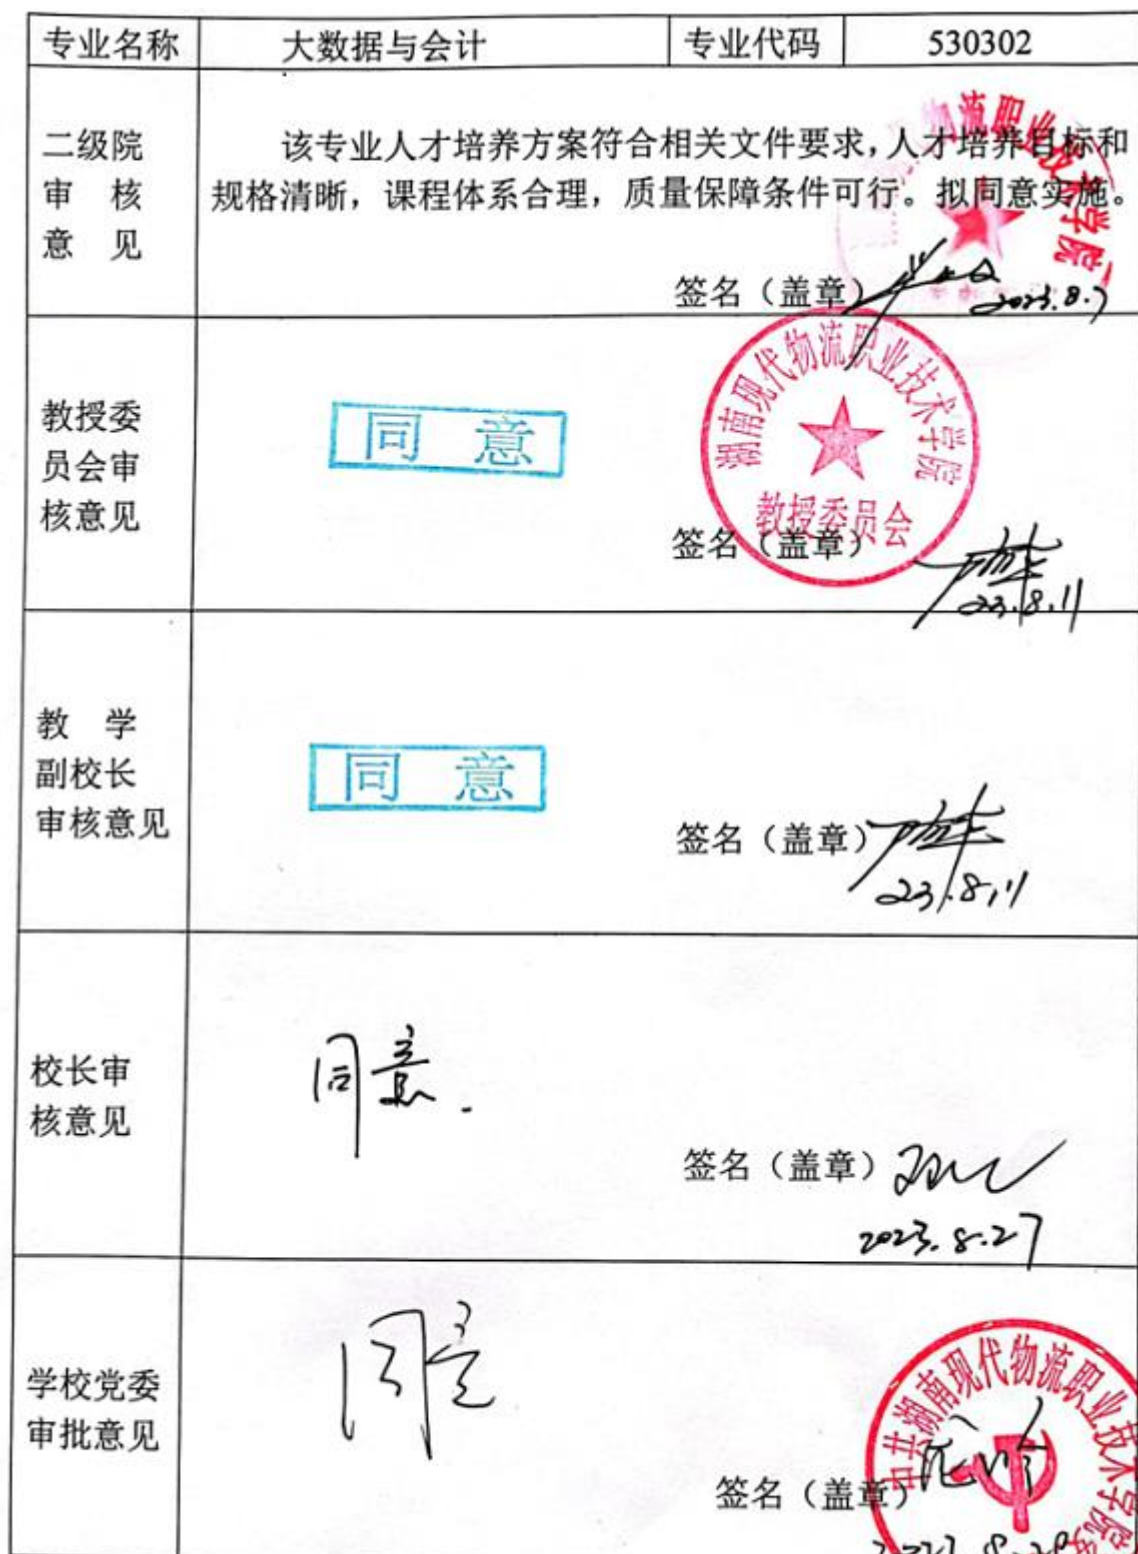 专业名称 大数据与会计 专业代码 530302
二级院
审 核
意 见
该专业人才培养方案符合相关文件要求，人才培养目标和
规格清晰，课程体系合理，质量保障条件可行。拟同意实施。
签名（盖章）
2023.8.7
物流职业技术学院
教授委
员会审
核意见
同 意
湖南现代物流职业技术学院
教授委员会
签名（盖章）
23.8.11
教 学
副校长
审核意见
同 意
签名（盖章）
23.8.11
校长审
核意见
同意.
签名（盖章）
2023.8.27
学校党委
审批意见
同意
中共湖南现代物流职业技术学院
签名（盖章）